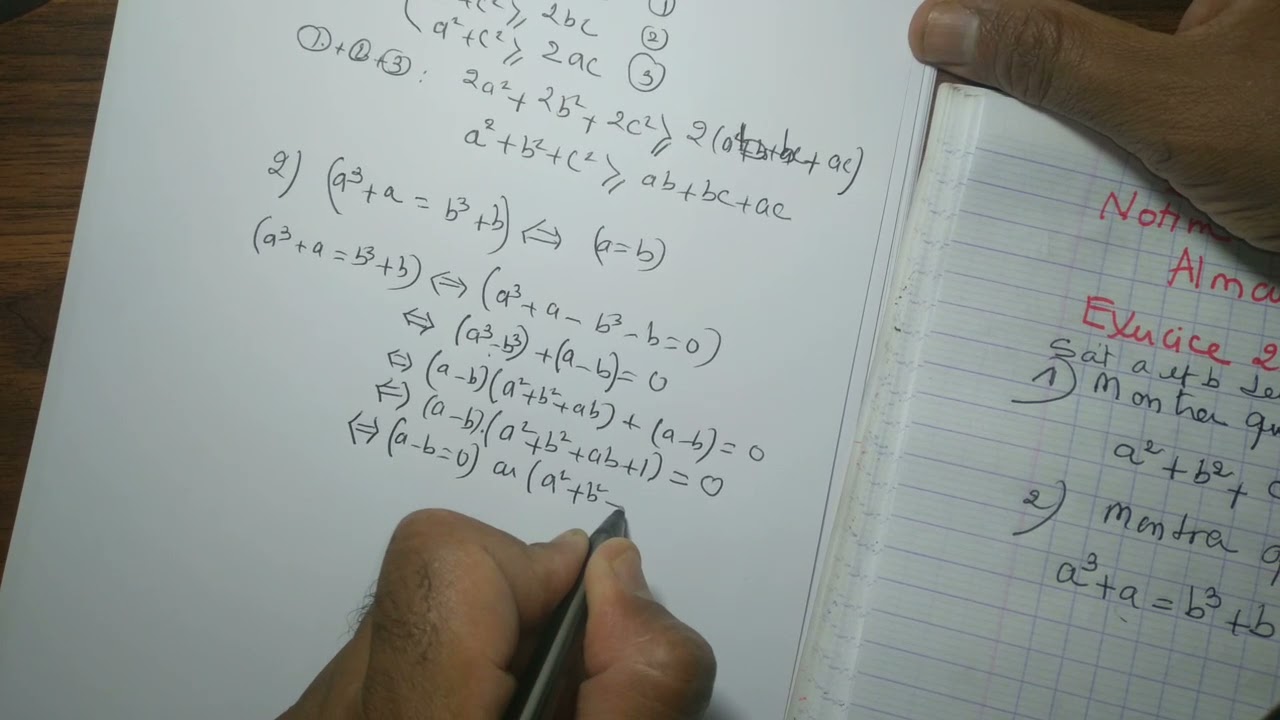 +c² ⩾ 2bc ②
a²+c² ⩾ 2ac ③
①+②+③ : 2a²+2b²+2c² ⩾ 2( + ac)
a²+b²+c² ⩾ ab+bc+ac
2) (a³+a = b³+b) ⇔ (a=b)
(a³+a=b³+b) ⇔ (a³+a-b³-b=0)
⇔ (a³-b³)+(a-b)=0
⇔ (a-b)(a²+b²+ab)+(a-b)=0
⇔ (a-b).(a²+b²+ab+1)=0
⇔ (a-b=0) ou (a²+b²
Exercice 2
Soit a et b
1) Montrer
a²+b²+
2) montrer
a³+a=b³+b